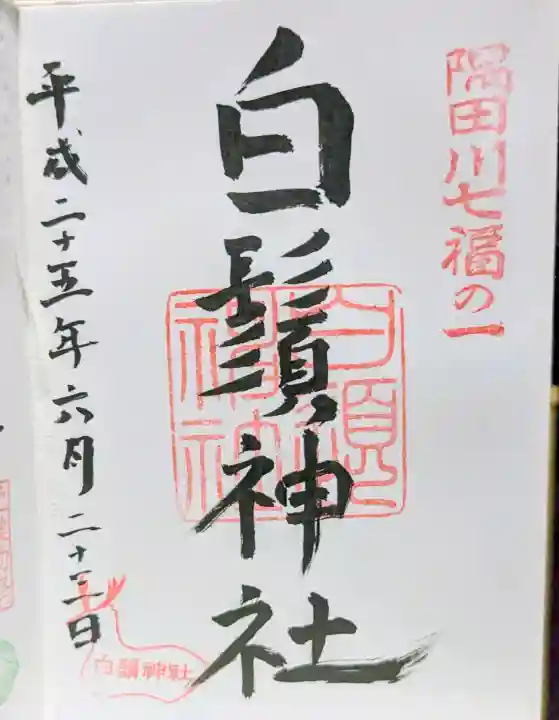 隅田川七福の一
白鬚神社
白鬚神社
平成二十五年六月二十三日
白鬚神社